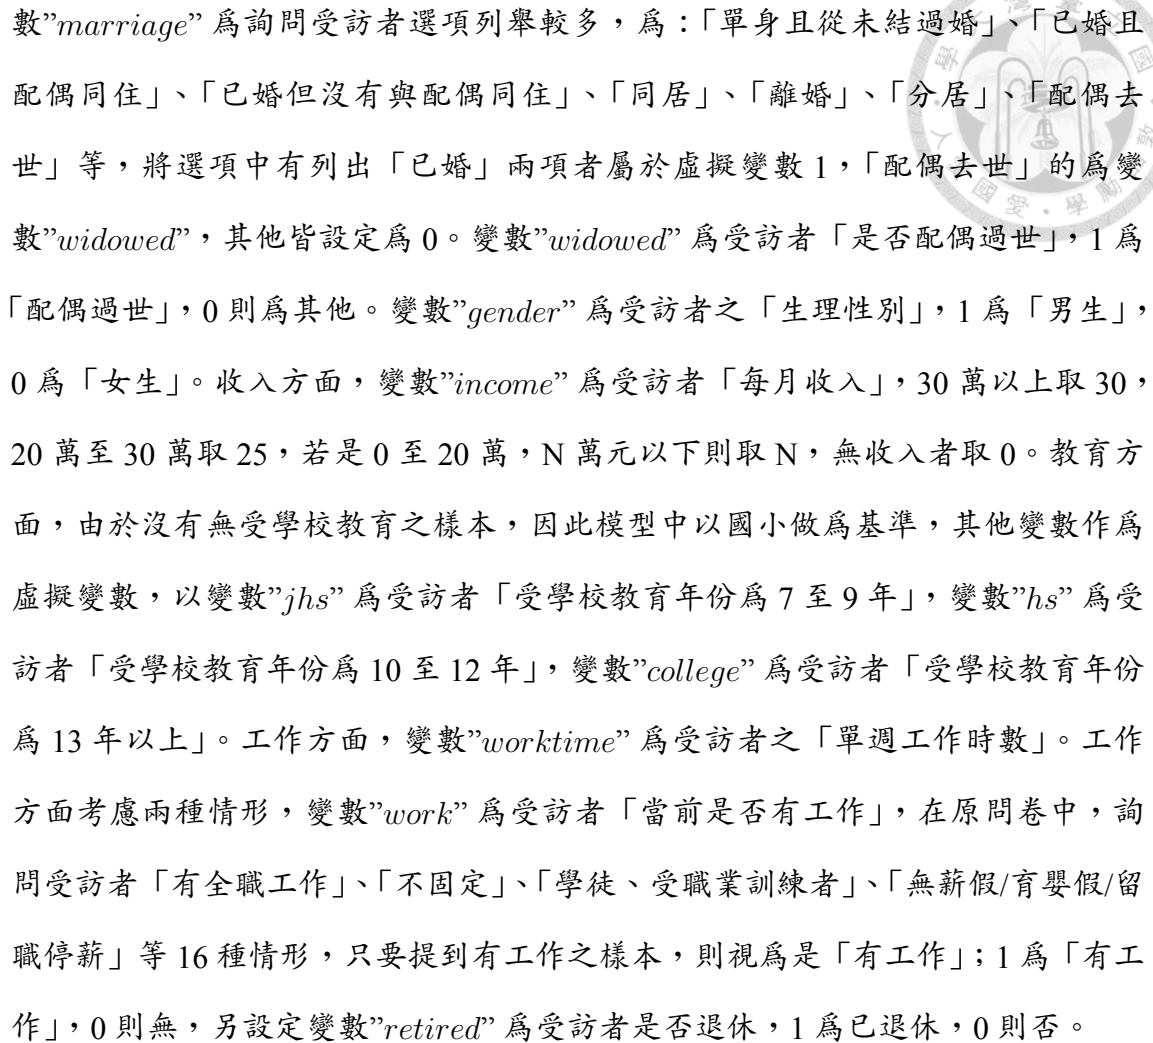 數”marriage” 爲詢問受訪者選項列舉較多，爲：「單身且從未結過婚」、「已婚且
配偶同住」、「已婚但沒有與配偶同住」、「同居」、「離婚」、「分居」、「配偶去
世」等，將選項中有列出「已婚」兩項者屬於虛擬變數 1，「配偶去世」的爲變
數”widowed”，其他皆設定爲 0。變數”widowed” 爲受訪者「是否配偶過世」，1 爲
「配偶過世」，0 則爲其他。變數”gender” 爲受訪者之「生理性別」，1 爲「男生」，
0 爲「女生」。收入方面，變數”income” 爲受訪者「每月收入」，30 萬以上取 30，
20 萬至 30 萬取 25，若是 0 至 20 萬，N 萬元以下則取 N，無收入者取 0。教育方
面，由於沒有無受學校教育之樣本，因此模型中以國小做爲基準，其他變數作爲
虛擬變數，以變數”jhs” 爲受訪者「受學校教育年份爲 7 至 9 年」，變數”hs” 爲受
訪者「受學校教育年份爲 10 至 12 年」，變數”college” 爲受訪者「受學校教育年份
爲 13 年以上」。工作方面，變數”worktime” 爲受訪者之「單週工作時數」。工作
方面考慮兩種情形，變數”work” 爲受訪者「當前是否有工作」，在原問卷中，詢
問受訪者「有全職工作」、「不固定」、「學徒、受職業訓練者」、「無薪假/育嬰假/留
職停薪」等 16 種情形，只要提到有工作之樣本，則視爲是「有工作」；1 爲「有工
作」，0 則無，另設定變數”retired” 爲受訪者是否退休，1 爲已退休，0 則否。